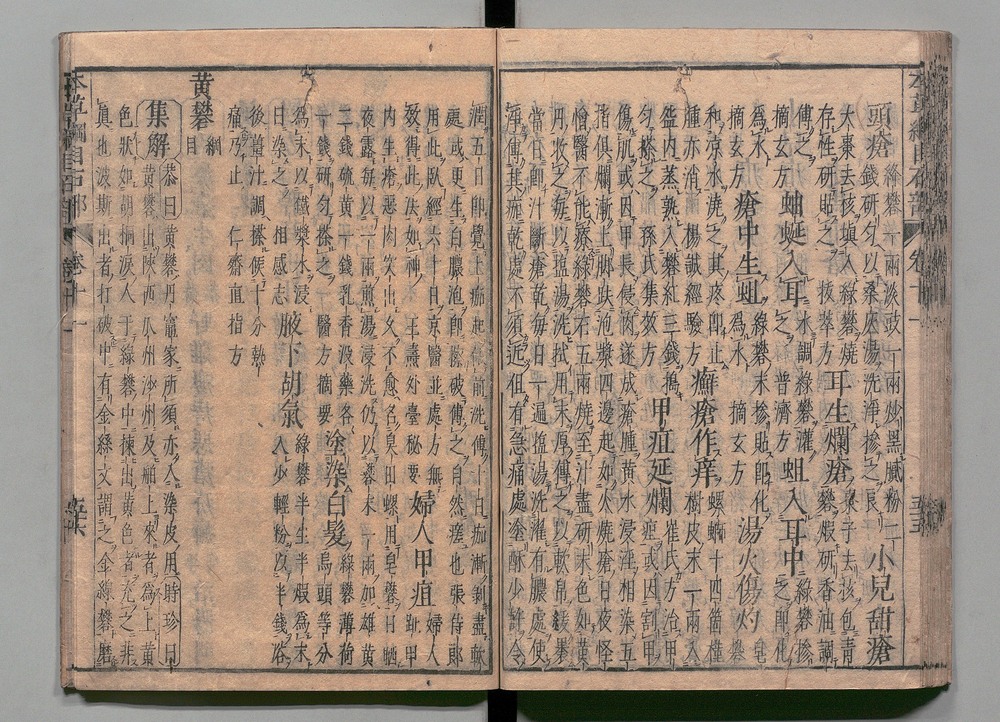 頭瘡 綠礬一兩淡豉一兩炒黑膩粉二
錢研勻以桑灰湯洗淨摻之良 小兒甜瘡
大棗去核填入綠礬燒
存性研貼之 拔萃方 耳生爛瘡 棗子去核包青
礬煆研香油調
傅之 普濟方 蚰蜒入耳 水調綠礬灌
之 蛆入耳中 綠礬摻
之即化
爲水 摘玄方 瘡中生蛆 綠礬末摻貼即化
爲水 摘玄方 湯火傷灼 皂礬
和涼水澆之其疼即止
腫亦消 楊誠經驗方 癬瘡作痒 螺螄十四箇槿
樹皮末一兩入
盌內蒸熟入礬紅三錢
勻搽之 孫氏集效方 甲疽延爛 崔氏方治甲
疽或因割甲
傷肌或因甲長侵肉遂成瘡腫黃水浸淫相染五
指俱爛漸上脚趺泡漿四邊起如火燒瘡日夜怪
憎醫不能療綠礬石五兩燒至汁盡研末色如黃
丹收之每以鹽湯洗拭用末厚傅之以軟帛纏裹
當日即汁斷瘡乾每日一遍鹽湯洗濯有膿處使
淨傅其痂乾處不須近但有急痛處塗酥少許令
潤五日即覺上痂起依前洗傅十日痂漸剝盡軟
處或更生白膿泡即擦破傅之自然瘥也張侍郎
用此臥經六十日京醫並處方無
效得此法如神 王燾外臺秘要 婦人甲疽 婦人
趾甲
內生瘡惡肉突出久不愈名臭田螺用皁礬日晒
夜露每以一兩煎湯浸洗仍以礬末一兩加雄黃
二錢硫黃一錢乳香沒藥各
一錢研勻搽之 醫方摘要 塗染白髮 綠礬薄荷
烏頭等分
爲末以鐵漿水浸
日染之 相感志 腋下胡氣 綠礬半生半煆爲末
入少輕粉以半錢浴
後薑汁調搽候十分熱
痛乃止 仁齋直指方
黃礬 綱目
集解 恭曰黃礬丹竈家所須亦入染皮用 時珍曰
黃礬出陝西瓜州沙州及舶上來者爲上黃
色狀如胡桐淚人于綠礬中揀出黃色者充之非
眞也波斯出者打破中有金絲文謂之金線礬磨
本草綱目石部 卷十一